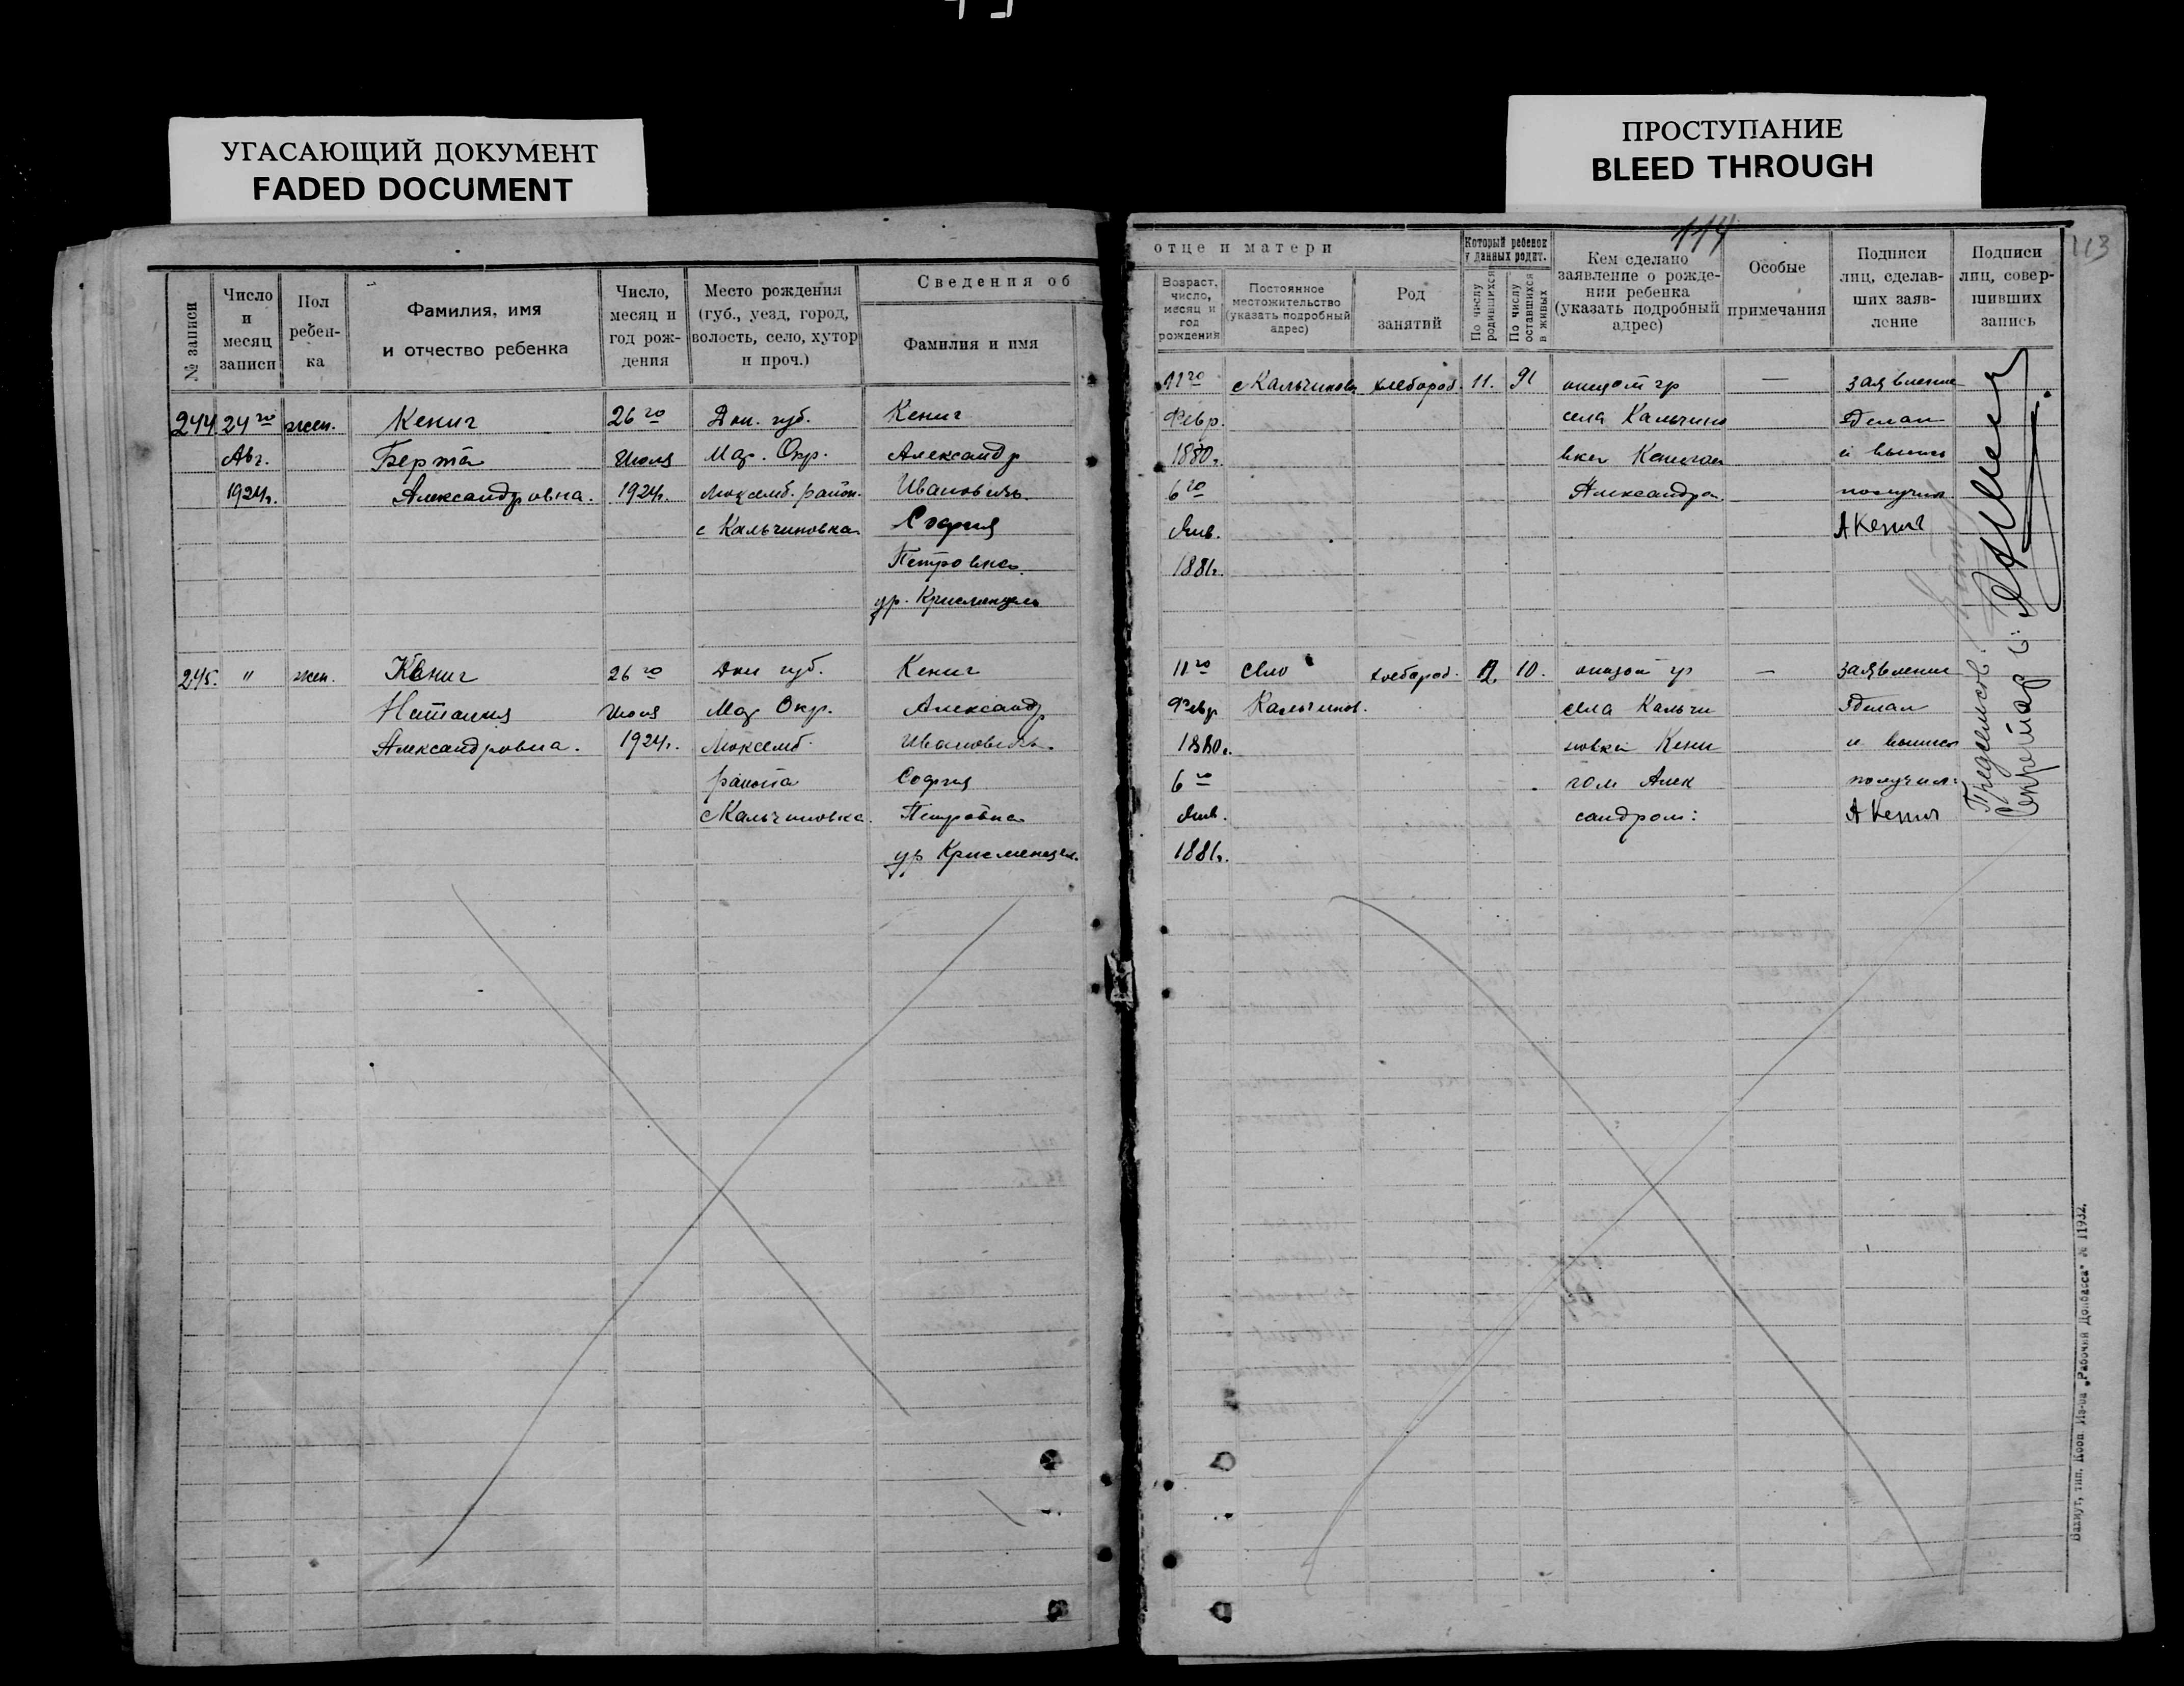 УГАСАЮЩИЙ ДОКУМЕНТ
FADED DOCUMENT
ПРОСТУПАНИЕ
BLEED THROUGH
114
113
№ записи
Число
и
месяц
записи
Пол
ребен-
ка
Фамилия, имя
и отчество ребенка
Число,
месяц и
год рож-
дения
Место рождения
(губ., уезд, город,
волость, село, хутор
и проч.)
Сведения об
Фамилия и имя
отце и матери
Возраст,
число,
месяц и
год
рождения
Постоянное
местожительство
(указать подробный
адрес)
Род
занятий
Который ребенок
у данных родит.
По числу
родившихся
По числу
оставшихся
в живых
Кем сделано
заявление о рожде-
нии ребенка
(указать подробный
адрес)
Особые
примечания
Подписи
лиц, сделав-
ших заяв-
ление
Подписи
лиц, совер-
шивших
запись
244
24го
Авг.
1924г.
жен.
Кениг
Берта
Александровна.
26го
Июля
1924г.
Дон. губ.
Мар. Окр.
Люксемб. район.
с Кальчиновка
Кениг
Александр
Иванович.
София
Петровна
ур.
11го
Февр.
1880г.
6го
Янв.
1881г.
с Кальчиновк
хлебороб.
11.
9
гр
села Кальчино
вка
Александр
—
заявление
сделал
и
получил
А Кениг
245.
"
жен.
Кениг
Наталия
Александровна.
26го
Июля
1924г.
Дон губ.
Мар Окр.
Люксемб.
района
с Кальчиновка.
Кениг
Александр
Иванович.
София
Петровна
ур
11го
Февр
1880г.
6го
Янв.
1881г.
село
Кальчинов.
хлебороб.
12
10.
гр
села Кальчи
новки Кени
гом Алек
сандром:
—
заявление
сделал
и
получил
А Кениг
Секретарь
Бахмут, тип. Кооп. Из-ва „Рабочий Донбасса" № 11932.